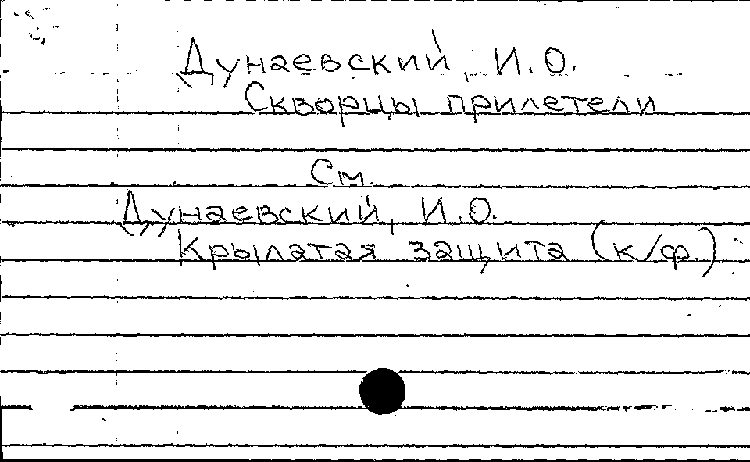 Дунаевский, И.О.
Скворцы прилетели
См.
Дунаевский, И.О.
Крылатая защита (к/ф.)